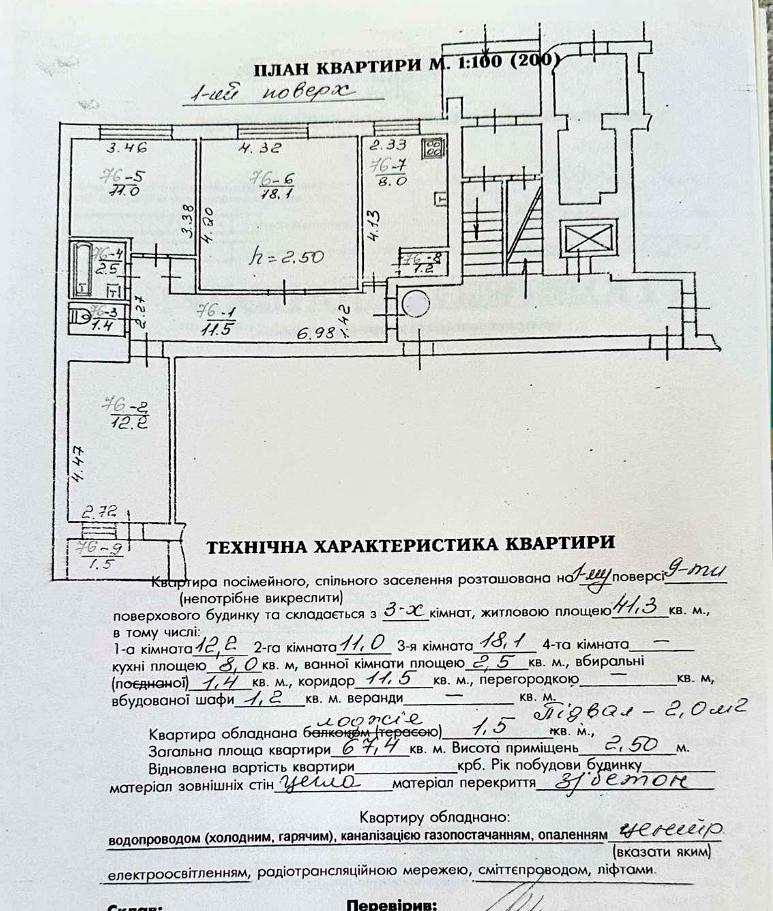 ПЛАН КВАРТИРИ М. 1:100 (200)
1-ий поверх
3.46
4.32
2.33
76-5
11.0
76-6
18.1
76-7
8.0
3.38
4.20
4.13
h = 2.50
76-4
2.5
76-8
1.2
76-3
1.4
2.27
76-1
11.5
6.98
1.42
76-2
12.2
4.47
2.72
76-9
1.5
ТЕХНІЧНА ХАРАКТЕРИСТИКА КВАРТИРИ
Квартира посімейного, спільного заселення розташована на 1-му поверсі 9-ти
(непотрібне викреслити)
поверхового будинку та складається з 3-х кімнат, житловою площею 41,3 кв. м.,
в тому числі:
1-а кімната 12,2 2-га кімната 11,0 3-я кімната 18,1 4-та кімната —
кухні площею 8,0 кв. м, ванної кімнати площею 2,5 кв. м., вбиральні
(поєднаної) 1,4 кв. м., коридор 11,5 кв. м., перегородкою — кв. м,
вбудованої шафи 1,2 кв. м. веранди — кв. м.
Підвал - 2,0 м2
лоджіє
Квартира обладнана балконом (терасою) 1,5 кв. м.,
Загальна площа квартири 67,4 кв. м. Висота приміщень 2,50 м.
Відновлена вартість квартири крб. Рік побудови будинку
матеріал зовнішніх стін цегла матеріал перекриття з/бетон
Квартиру обладнано:
водопроводом (холодним, гарячим), каналізацією газопостачанням, опаленням центр
(вказати яким)
електроосвітленням, радіотрансляційною мережею, сміттєпроводом, ліфтами.
Склав: Перевірив: